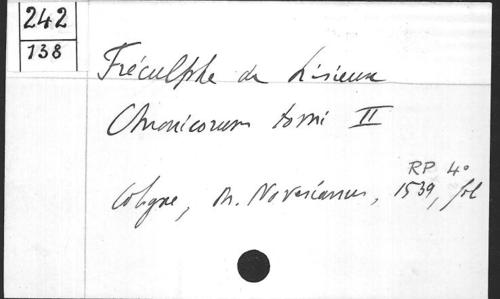 242
138
Fréculphe de Lisieux
Chronicorum tomi II
RP 4°
Cologne, M. Novesianus, 1539, fol